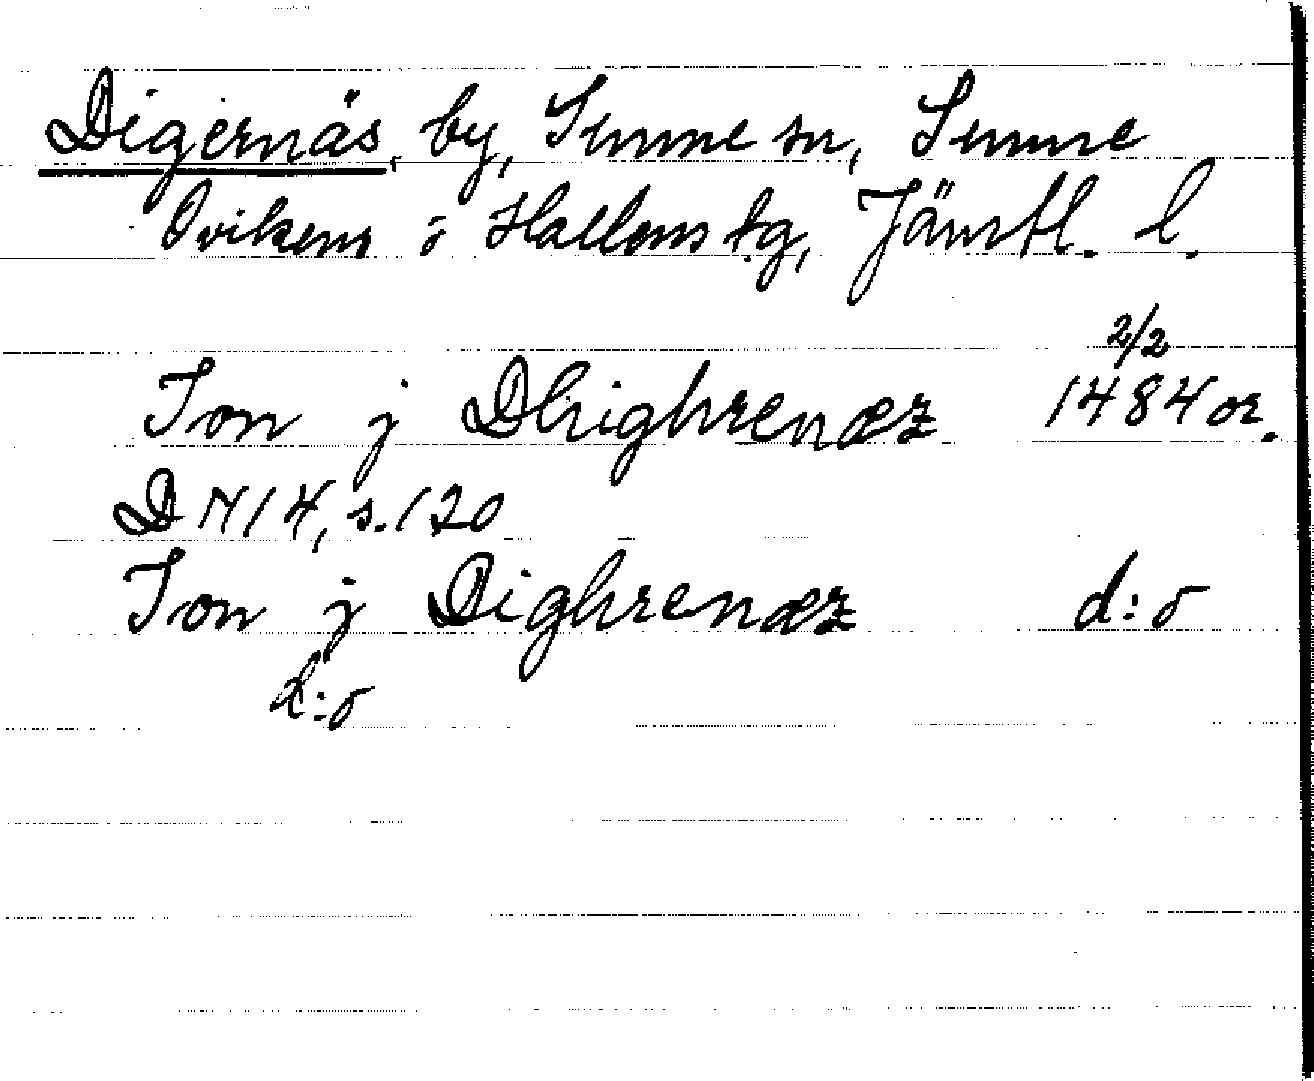 Digernäs, by, Sunne sn, Sunne
Ovikens o Hallens tg, Jämtl. l.
2/2
Ion j Dhighrenæz 1484 or.
D N 14, s. 120
Ion j Dighrenæz d:o
d:o